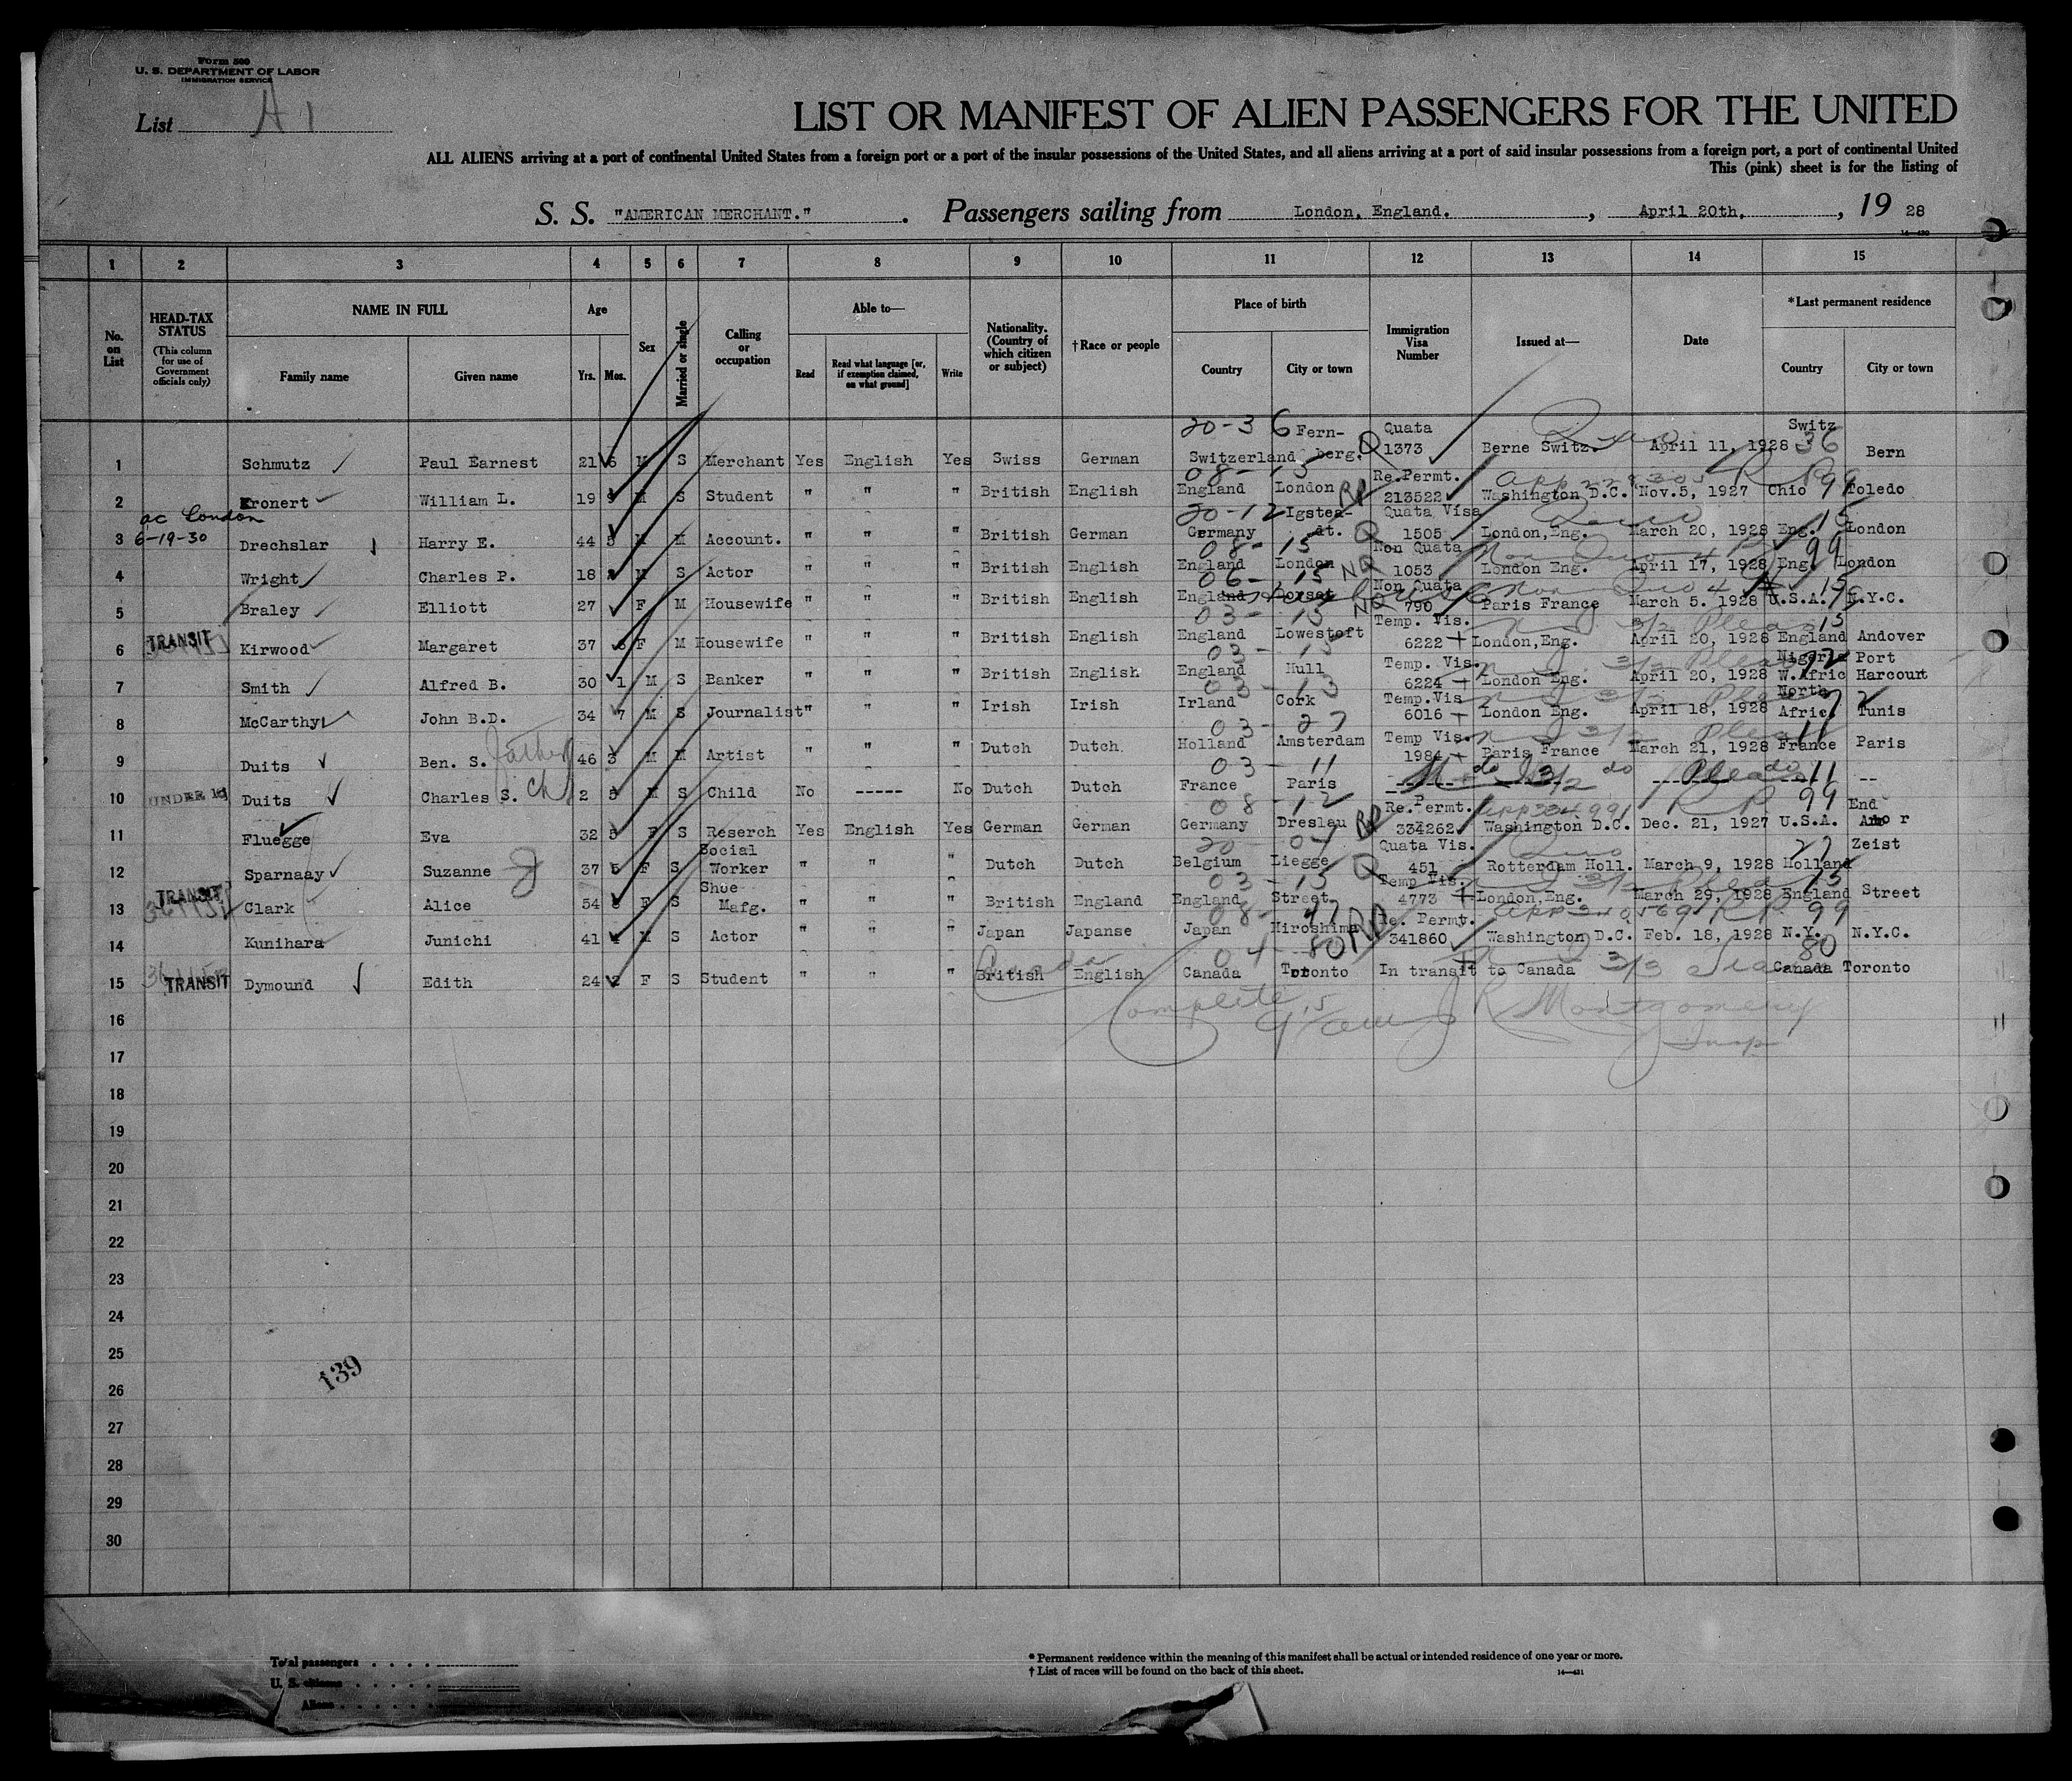 Form 500
U. S. DEPARTMENT OF LABOR
IMMIGRATION SERVICE
List A 1
LIST OR MANIFEST OF ALIEN PASSENGERS FOR THE UNITED
ALL ALIENS arriving at a port of continental United States from a foreign port or a port of the insular possessions of the United States, and all aliens arriving at a port of said insular possessions from a foreign port, a port of continental United
This (pink) sheet is for the listing of
S. S. "AMERICAN MERCHANT." . Passengers sailing from London, England. , April 20th, , 19 28
1 2 3 4 5 6 7 8 9 10 11 12 13 14 15
No. on List
HEAD-TAX STATUS
(This column for use of Government officials only)
NAME IN FULL
Family name Given name
Age
Yrs. Mos.
Sex
Married or single
Calling or occupation
Able to—
Read Read what language [or, if exemption claimed, on what ground] Write
Nationality. (Country of which citizen or subject)
†Race or people
Place of birth
Country City or town
Immigration Visa Number
Issued at—
Date
*Last permanent residence
Country City or town
20-36 Fern- Quata Switz
1 Schmutz Paul Earnest 21 6 M S Merchant Yes English Yes Swiss German Switzerland berg. Q 1373 Berne Switz. April 11, 1928 36 Bern
08-15 Re.Permt.
2 Kronert William L. 19 9 M S Student " " " British English England London RP 213522 Washington D.C. Nov.5, 1927 Ohio 99 Toledo
ac London 20-12 Igstea- Quata Visa
6-19-30
3 Drechslar Harry E. 44 5 M M Account. " " " British German Germany dt. Q 1505 London,Eng. March 20, 1928 Eng. 15 London
08-15 Non Quata
4 Wright Charles P. 18 M S Actor " " " British English England London NQ 1053 London Eng. April 17, 1928 Eng. 99 London
06-15 Non Quata
5 Braley Elliott 27 F M Housewife " " " British English England Dorset NQ 790 Paris France March 5. 1928 U.S.A. 15 N.Y.C.
03-15 Temp. Vis. 3/2 Pleas 15
TRANSIT
6 Kirwood Margaret 37 F M Housewife " " " British English England Lowestoft 6222 London,Eng. April 20, 1928 England Andover
03-15 Temp. Vis. 3/2 Pleas Nigeria 92 Port
7 Smith Alfred B. 30 1 M S Banker " " " British English England Hull 6224 London Eng. April 20, 1928 W.Afric Harcourt
03-13 Temp.Vis 3/2 Pleas North
8 McCarthy John B.D. 34 7 M S Journalist " " " Irish Irish Irland Cork 6016 London Eng. April 18, 1928 Africa Tunis
03-27 Temp Vis. 3/2 Pleas 11
9 Duits Ben. S. father 46 3 M M Artist " " " Dutch Dutch Holland Amsterdam 1984 Paris France March 21, 1928 France Paris
03-11 do 3/2 do Pleas do 11
UNDER 16
10 Duits Charles S. Ch 2 5 M S Child No ----- No Dutch Dutch France Paris --
08-12 Re.Permt. App 334991 R P 99 End
11 Fluegge Eva 32 5 F S Reserch Yes English Yes German German Germany Dreslau RP 334262 Washington D.C. Dec. 21, 1927 U.S.A.
Social 20-04 Quata Vis. 27 Zeist
12 Sparnaay Suzanne 37 5 F S Worker " " " Dutch Dutch Belgium Liegge Q 451 Rotterdam Holl. March 9, 1928 Holland
Shoe 03-15 Temp Vis. 3/2 Pleas 15
TRANSIT
13 Clark Alice 54 F S Mafg. " " " British England England Street 4773 London,Eng. March 29, 1928 England Street
08-47 Re. Permt. App 340569 R P 99
14 Kunihara Junichi 41 M S Actor " " " Japan Japanse Japan Hiroshima RP 341860 Washington D.C. Feb. 18, 1928 N.Y. N.Y.C.
Canada 04-80 3/3 80
TRANSIT
15 Dymound Edith 24 2 F S Student " " " British English Canada Toronto In transit to Canada Canada Toronto
16 Complete J R Montgomery
Insp
17
18
19
20
21
22
23
24
25
26
27
28
29
30
139
Total passengers
U. S. citizens
Aliens
* Permanent residence within the meaning of this manifest shall be actual or intended residence of one year or more.
† List of races will be found on the back of this sheet.
14—431